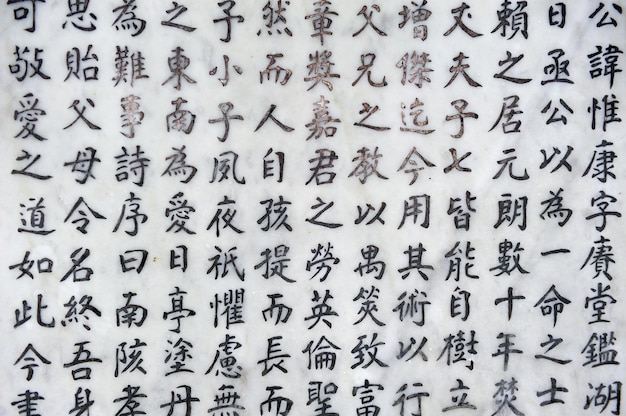 公諱惟康字賡堂鑑湖
日亟公以為一命之士
賴之居元朗數十年焚
丈夫子七皆能自樹立
增傑迄今用其術以行
父兄之教以禺筴致富
章獎嘉君之勞英倫聖
然而人自孩提而長而
子小子夙夜祇懼慮無
之東南為愛日亭塗丹
為難事詩序曰南陔孝
思貽父母令名終吾身
可敬愛之道如此今書